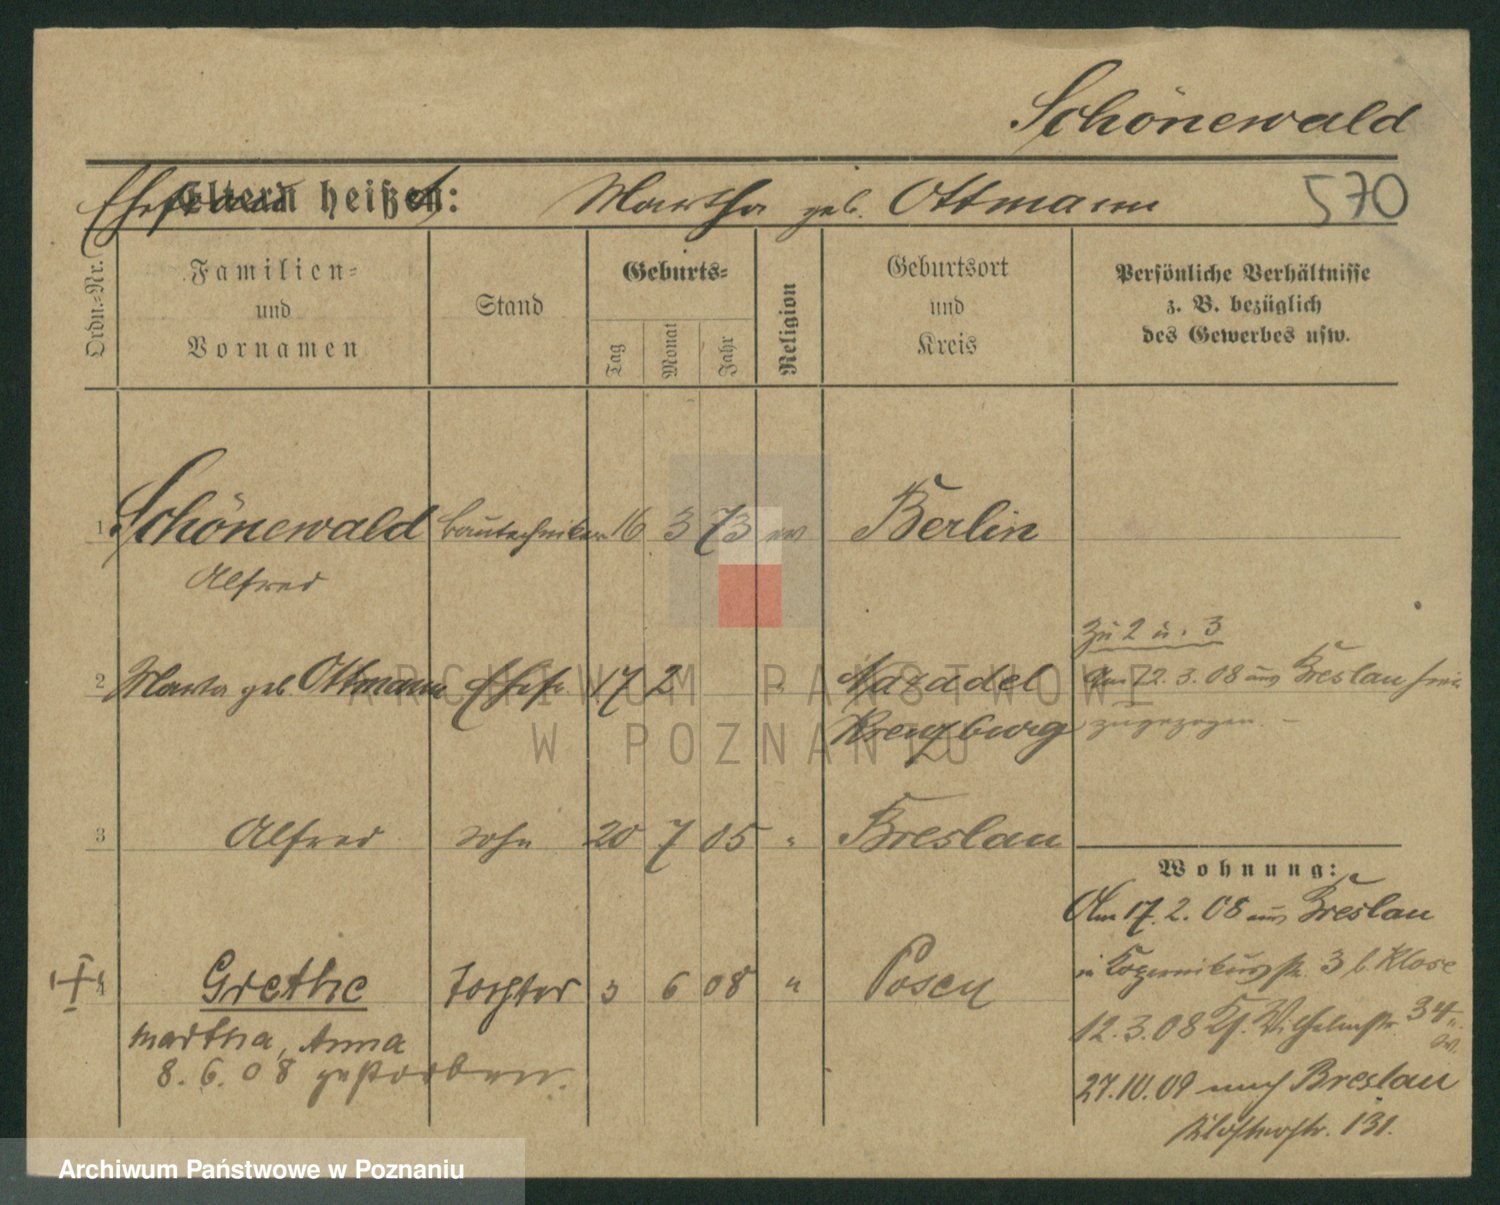 Schönewald
Ehefrau
Eltern heißen: Martha geb. Ottmann 570
Ordn.-Nr.
Familien-
und
Vornamen
Stand
Geburts-
Tag
Monat
Jahr
Religion
Geburtsort
und
Kreis
Persönliche Verhältnisse
z. B. bezüglich
des Gewerbes usw.
1 Schönewald Bautechniker 16 3 73 ev Berlin
Alfred
zu 2 u. 3
2 Marta geb. Ottmann Ehefr. 17 2 " Am 12. 3. 08 aus Breslau
Kreuzburg zugezogen. –
3 Alfred Sohn 20 7 05 " Breslau
Wohnung:
Am 17. 2. 08 aus Breslau
3 b. Klose
4 Grethe Tochter 3 6 08 " Posen
12. 3. 08 Wilhelmstr. 34
Martha, Anna
8. 6. 08 gestorben.
27. 10. 09 nach Breslau
Klosterstr. 131.
ARCHIWUM PAŃSTWOWE
W POZNANIU
Archiwum Państwowe w Poznaniu